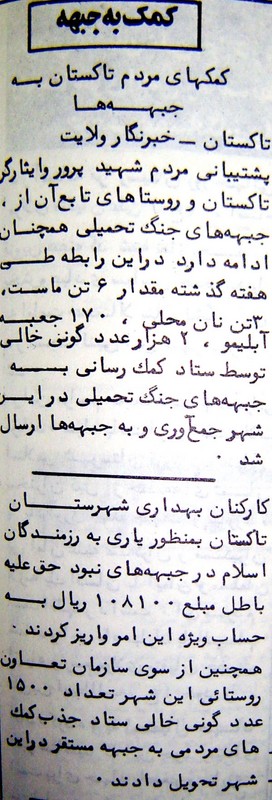 کمک به جبهه
کمکهای مردم تاکستان بـه
جبهـه‌هـا
تاکستان ــ خبرنگار ولایت
پشتیبانی مردم شهید پرور وایثارگر
تاکستان و روستاهای تابع‌آن از ،
جبهه‌های جنگ تحمیلی همچنـان
ادامه دارد دراین رابطه طـی
هفته گذشته مقدار ۶ تن ماست،
۳تن نان محلی ، ۱۷۰ جعبـه
آبلیمو ، ۲ هزارعدد گونی خالی
توسط ستاد کمک رسانی بـه
جبهه‌های جنگ تحمیلی در ایـن
شهر جمع‌آوری و به جبهه‌ها ارسال
شد .
کارکنان بهداری شهرستـان
تاکستان بمنظور یاری به رزمندگان
اسلام در جبهه‌های نبود حق علیه
باطل مبلغ ۱۰۸۱۰۰ ریال بـه
حساب ویژه این امر واریز کردند .
همچنین از سوی سازمان تعـاون
روستائی این شهر تعداد ۱۵۰۰
عدد گونی خالی ستاد جذب کمک
های مردمی به جبهه مستقر دراین
شهر تحویل دادند .